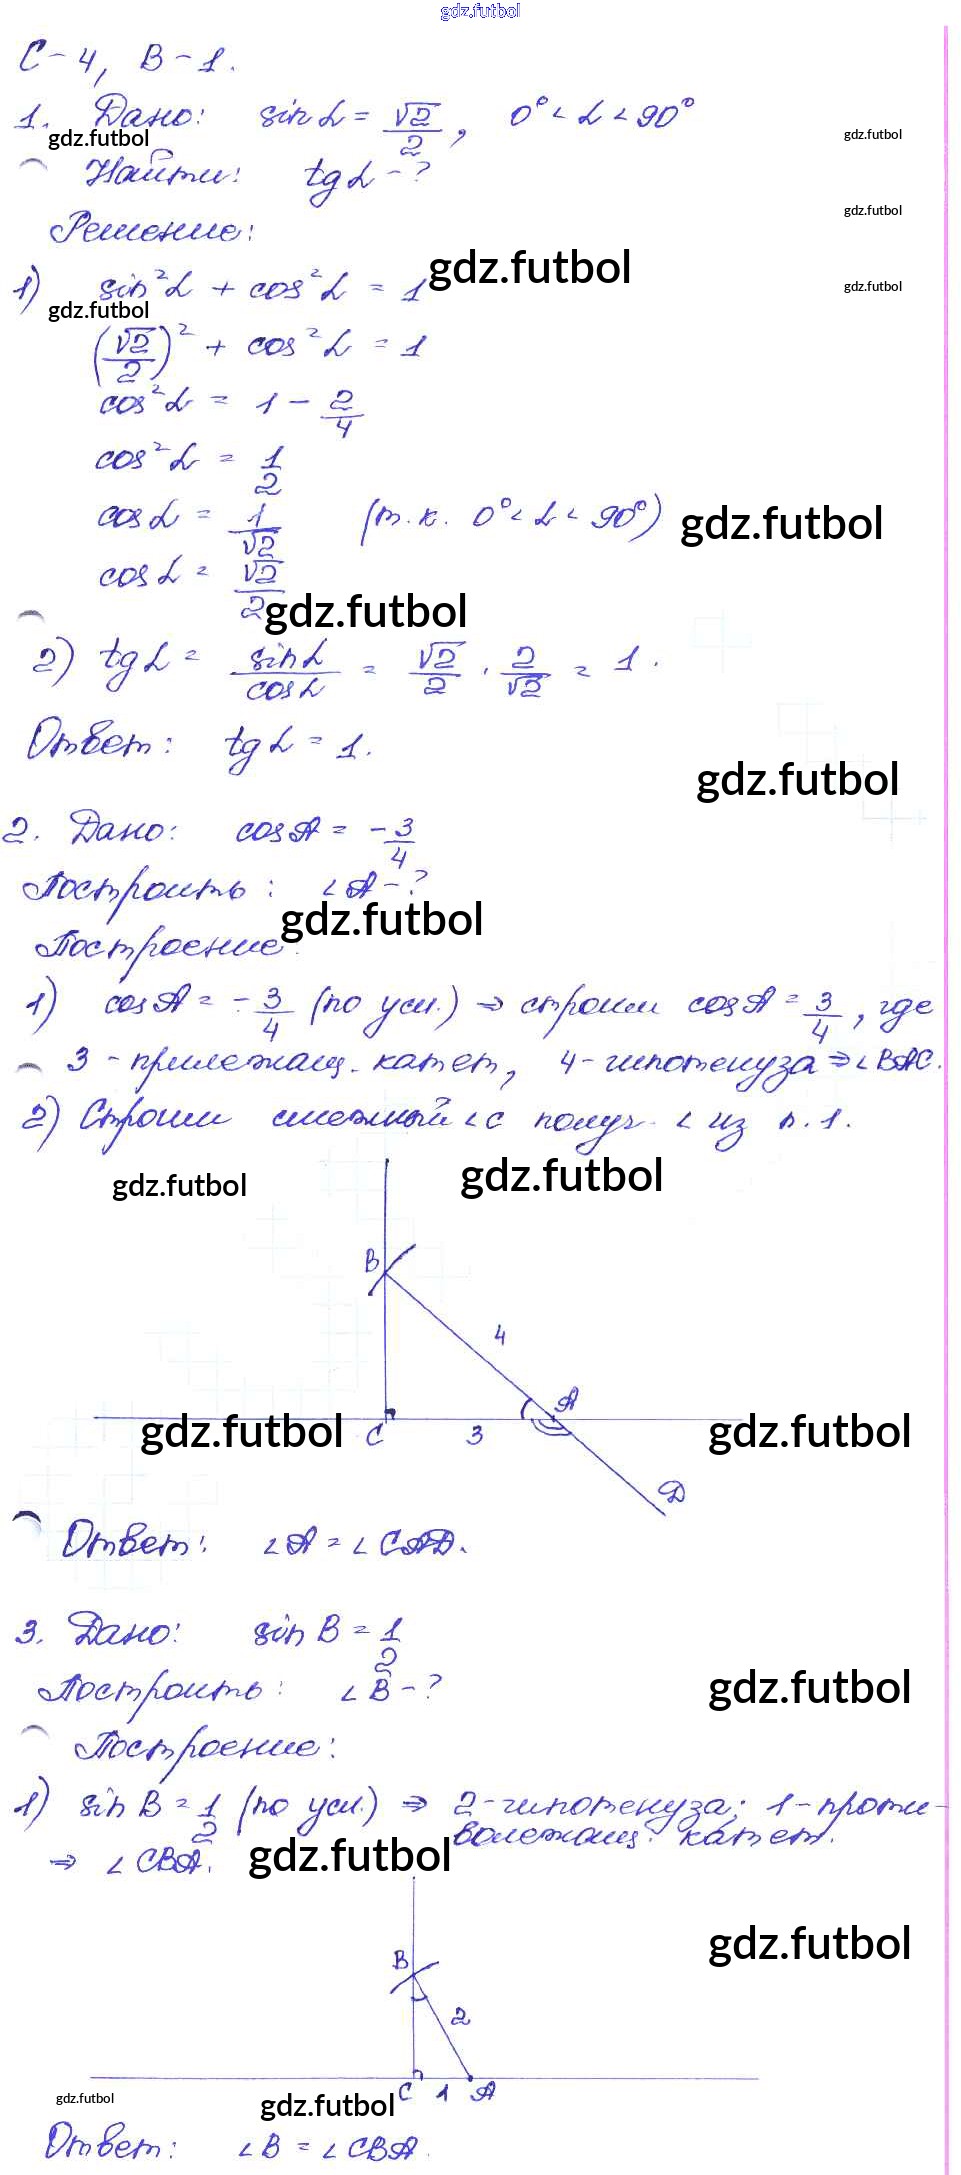 gdz.futbol
С-4, В-1.
1. Дано: sin α = √2/2, 0° < α < 90°
gdz.futbol gdz.futbol
Найти: tg α - ?
gdz.futbol
Решение:
gdz.futbol
1) sin²α + cos²α = 1
gdz.futbol
gdz.futbol
(√2/2)² + cos²α = 1
cos²α = 1 - 2/4
cos²α = 1/2
cos α = 1/√2 (т.к. 0° < α < 90°) gdz.futbol
cos α = √2/2
gdz.futbol
2) tg α = sin α/cos α = √2/2 · 2/√2 = 1.
Ответ: tg α = 1.
gdz.futbol
2. Дано: cos A = -3/4
Построить: ∠A - ?
gdz.futbol
Построение:
1) cos A = -3/4 (по усл.) ⇒ строим cos A = 3/4, где
3 - прилежащ. катет, 4 - гипотенуза ⇒ ∠BAC.
2) Строим смежный ∠ с получ. ∠ из п.1.
gdz.futbol gdz.futbol
B
4
A
gdz.futbol C 3 gdz.futbol
D
Ответ: ∠A = ∠CAD.
3. Дано: sin B = 1/2
Построить: ∠B - ? gdz.futbol
Построение:
1) sin B = 1/2 (по усл.) ⇒ 2 - гипотенуза; 1 - проти-
волежащ. катет.
⇒ ∠CBA. gdz.futbol
gdz.futbol
B
2
C 1 A
gdz.futbol gdz.futbol
Ответ: ∠B = ∠CBA.